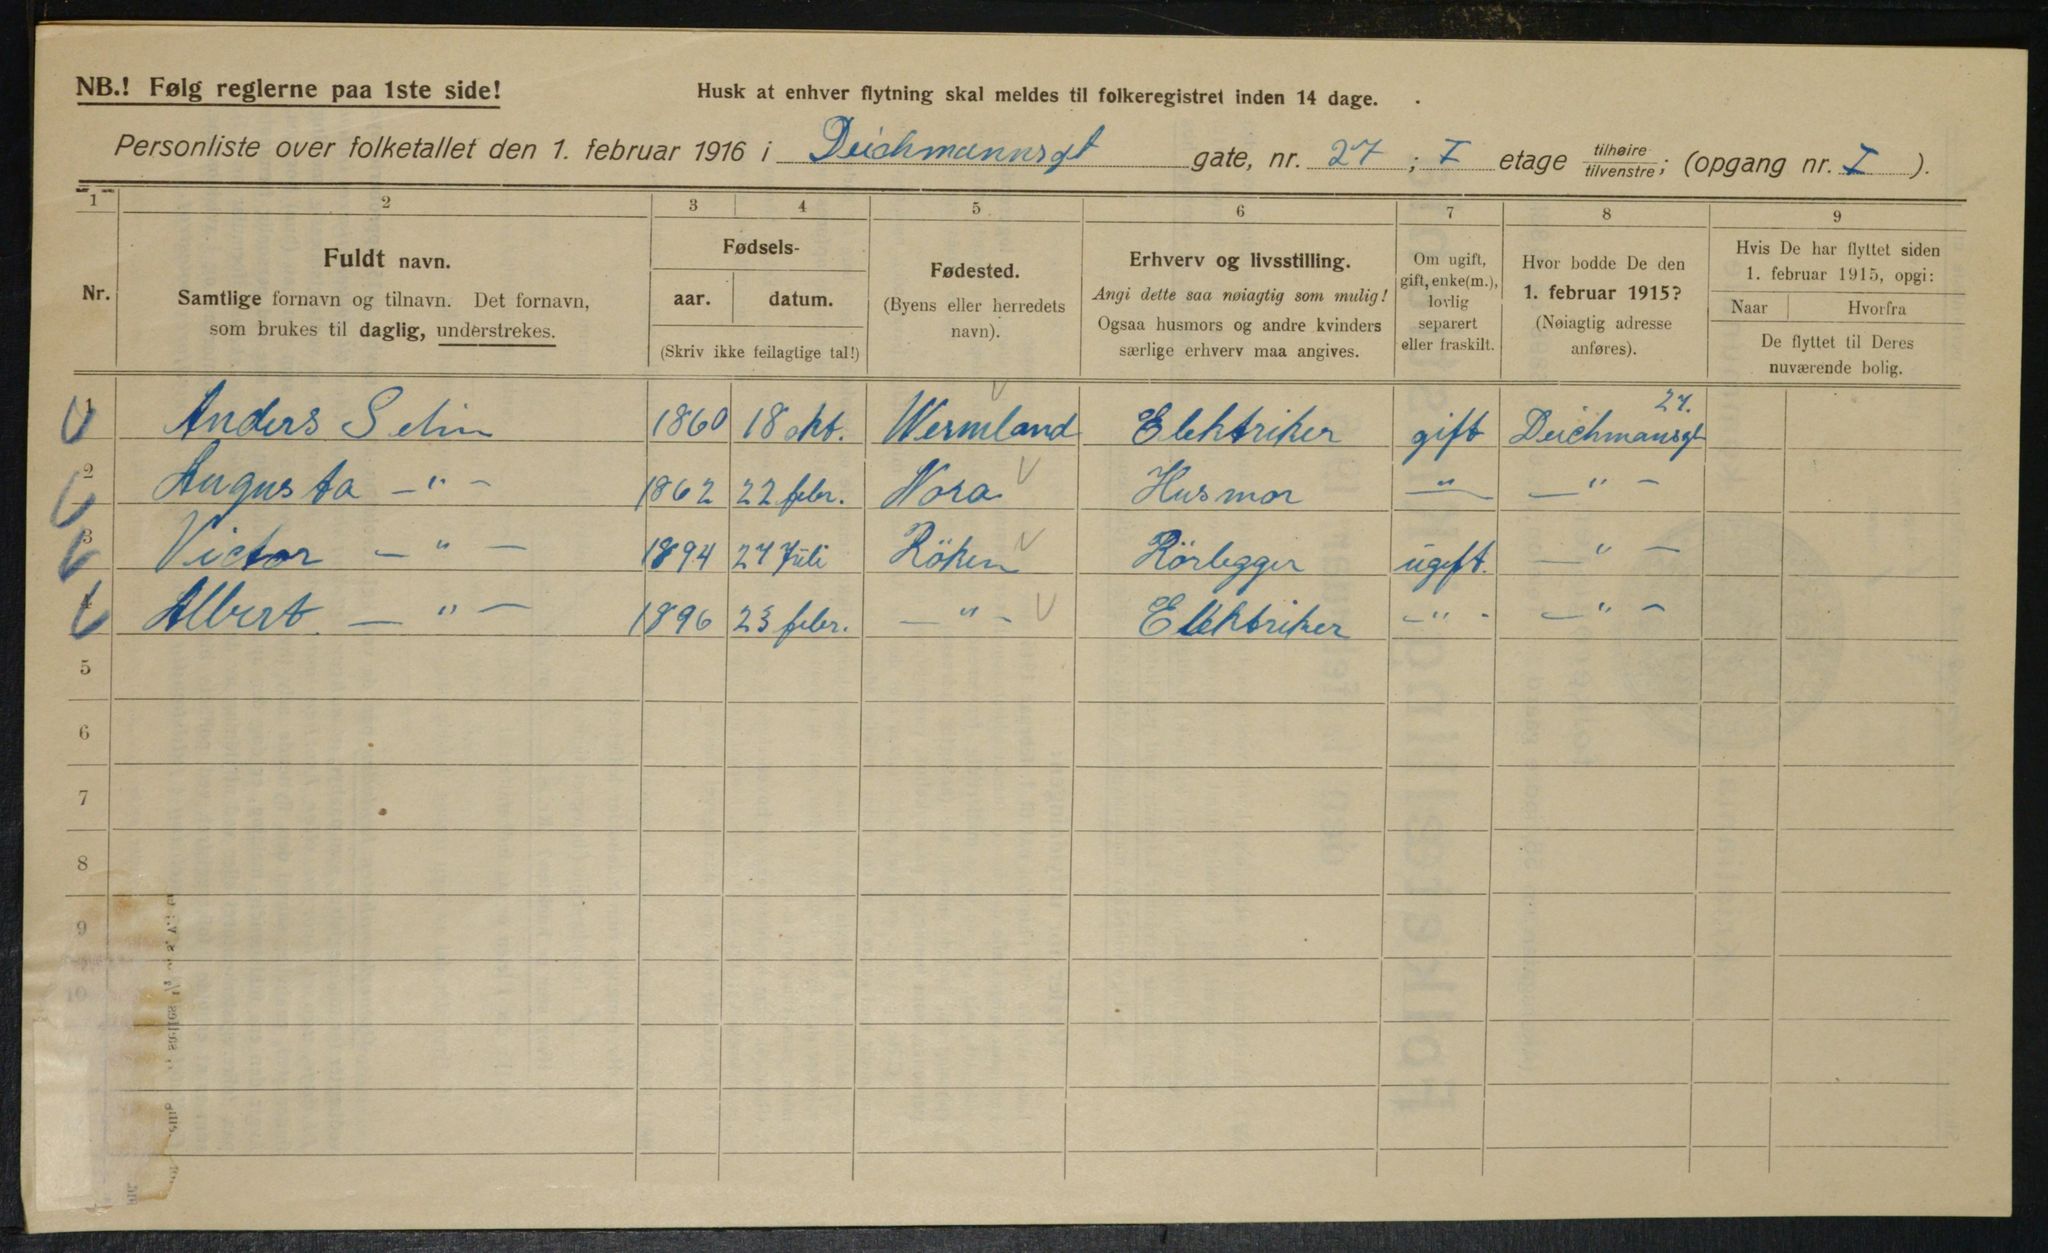 NB.! Følg reglerne paa 1ste side!
Husk at enhver flytning skal meldes til folkeregistret inden 14 dage.
Personliste over folketallet den 1. februar 1916 i Deichmannsgt gate, nr. 27 ; I etage tilhøire tilvenstre; (opgang nr. I ).
1 2 3 4 5 6 7 8 9
Nr.
Fuldt navn.
Samtlige fornavn og tilnavn. Det fornavn,
som brukes til daglig, understrekes.
Fødsels-
aar. datum.
(Skriv ikke feilagtige tal!)
Fødested.
(Byens eller herredets
navn).
Erhverv og livsstilling.
Angi dette saa nøiagtig som mulig!
Ogsaa husmors og andre kvinders
særlige erhverv maa angives.
Om ugift,
gift, enke(m.),
lovlig
separert
eller fraskilt.
Hvor bodde De den
1. februar 1915?
(Nøiagtig adresse
anføres).
Hvis De har flyttet siden
1. februar 1915, opgi:
Naar Hvorfra
De flyttet til Deres
nuværende bolig.
1 Anders Selin 1860 18 okt. Wermland Elektriker gift Deichmansgt 27.
2 Augusta —"— 1862 22 febr. Nora Husmor —"— —"—
3 Victor —"— 1894 27 Juli Röken Rörlegger ugift. —"—
4 Albert —"— 1896 23 febr. —"— Elektriker —"— —"—
5
6
7
8
9
10